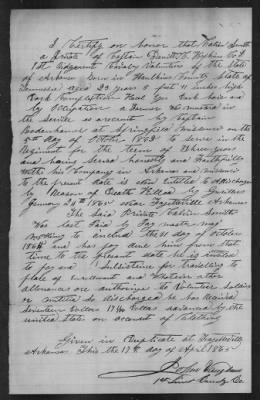 I Certify on honor that Calvin Smith
a Private of Captain Hopkins Co. I
1st Regiment Cavalry Volunteers of the State
of Arkansas born in Hawkins County State of
Tennessee aged 33 years 5 feet 11 inches high
Dark Complexion Hair Eyes and
by Occupation a Farmer was mustered in
the Service as a recruit by Captain
Bodenhamer at Springfield Missouri on the
day of October 1863 to Serve in the
Regiment for the Term of Three years
and having Served honestly and Faithfully
with his Company in Arkansas and Missouri
to the present date is now Entitled to a Discharge
by Reason of Death Killed by Guerillas
January 24th 1865 near Fayetteville Arkansas
The Said Private Calvin Smith
was Last Paid by Pay master
to include the 31 day of October
1864 and has pay due him from that
time to the present date he is entitled
to pay and Subsistence for Traveling to
place of Enrollment and whatever other
allowances are authorized to Volunteer Soldiers
or militia so discharged he has Received
Seventeen Dollars advanced by the
United State on account of Clothing
Given in Duplicate at Fayetteville
Arkansas This the 17th day of April 1865
1st Lieut Comdg Co.